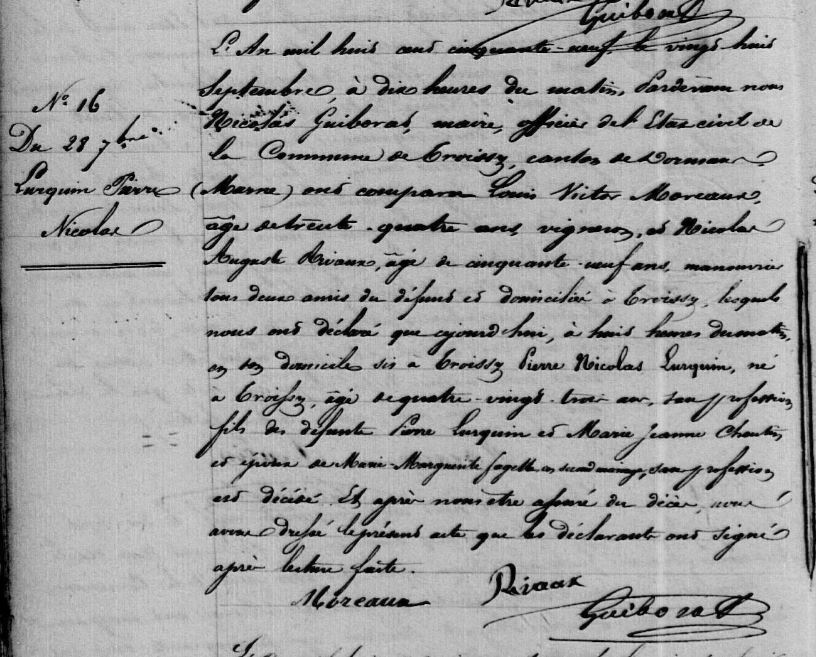 Guiborat
L'An mil huit cent cinquante-neuf le vingt huit
Septembre, à dix heures du matin, Pardevant nous
N° 16
Nicolas Guiborat, maire, officier de l'Etat civil de
Du 28 7bre
la Commune de Troissy, canton de Dormans
Lurquin Pierre
(Marne) ont comparu Louis Victor Moreaux,
Nicolas
âgé de trente-quatre ans, vigneron, et Nicolas
Auguste Rivaux, âgé de cinquante-neuf ans, manouvrier
tous deux amis du défunt et domiciliés à Troissy, lesquels
nous ont déclaré que cejourd'hui, à huit heures du matin,
en son domicile sis à Troissy Pierre Nicolas Lurquin, né
à Troissy, âgé de quatre-vingt-trois ans, sans profession
fils des défunts Pierre Lurquin et Marie Jeanne
et époux de Marie Marguerite en second mariage, sans profession
est décédé. Et après nous être assuré du décès, nous
avons dressé le présent acte que les déclarants ont signé
après lecture faite.
Moreaux Rivaux
Guiborat